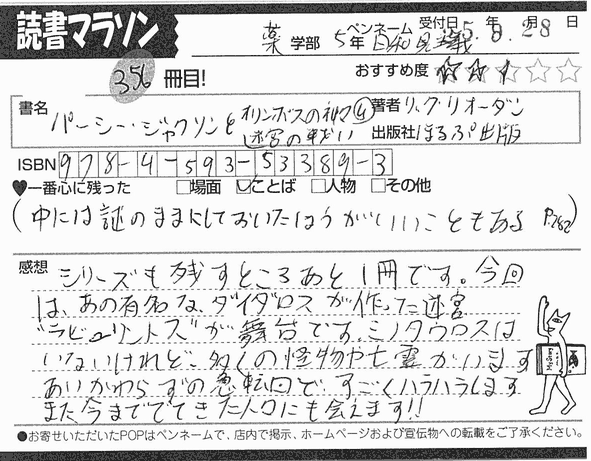 読書マラソン
薬 学部 5年 ペンネーム 日和見主義 受付日 年 8月 28日
356 冊目! おすすめ度
書名 パーシー・ジャクソンとオリンポスの神々④ 迷宮の戦い
著者 リック・リオーダン
出版社 ほるぷ出版
ISBN 978-4-593-53389-3
♥一番心に残った □場面 ☑ことば □人物 □その他
(中には謎のままにしておいたほうがいいこともある P.282)
感想 シリーズも残すところあと1冊です。今回
は、あの有名な、ダイダロスが作った迷宮
"ラビュリントス"が舞台です。ミノタウロスは
いないけれど、多くの怪物や亡霊がいます
あいかわらずの急転回で、すごくハラハラします
また今まででてきた人口にも会えます!!
●お寄せいただいたPOPはペンネームで、店内で掲示、ホームページおよび宣伝物への転載をご了承ください。